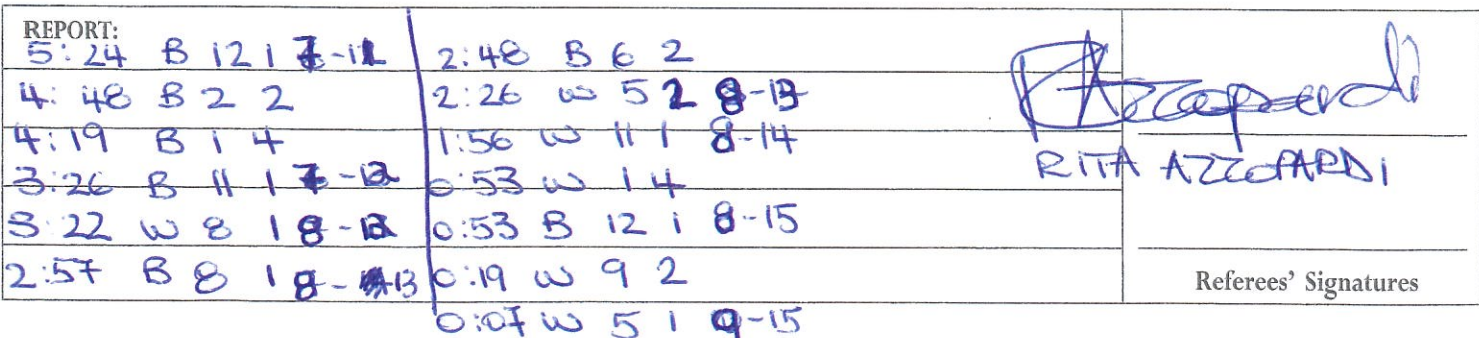 REPORT:
5:24 B 12 1 7-11
4:48 B 2 2
4:19 B 1 4
3:26 B 11 1 7-12
3:22 W 8 1 8-12
2:57 B 8 1 8-13
2:48 B 6 2
2:26 W 5 2 8-13
1:56 W 11 1 8-14
0:53 W 1 4
0:53 B 12 1 8-15
0:19 W 9 2
0:07 W 5 1 9-15
RITA AZZOPARDI
Referees' Signatures